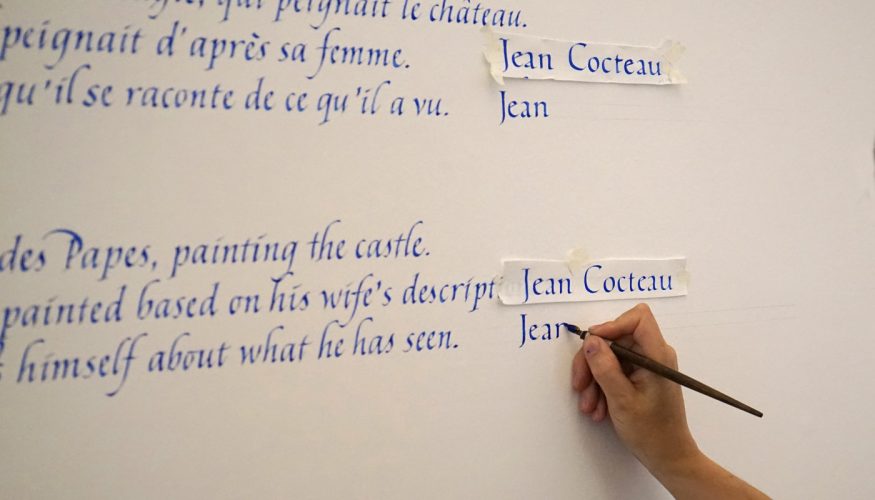 qui peignait le château.
peignait d'après sa femme.
Jean Cocteau
qu'il se raconte de ce qu'il a vu.
Jean
des Papes, painting the castle.
painted based on his wife's descript
Jean Cocteau
himself about what he has seen.
Jean